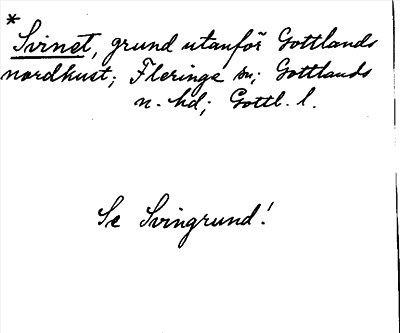 *
Svinet, grund utanför Gottlands
nordkust; Fleringe sn; Gottlands
n. hd; Gottl. l.
Se Svingrund!